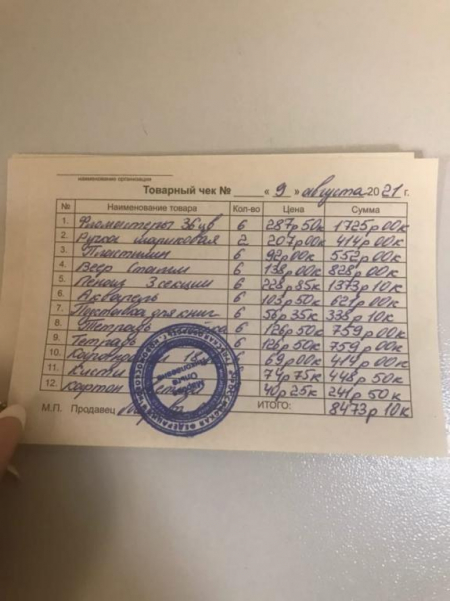 наименование организации
Товарный чек № « 9 » августа 2021г.
№ Наименование товара Кол-во Цена Сумма
1. Фломастеры 36цв 6 287р 50к 1725р 00к
2. Ручка шариковая 2 207р 00к 414р 00к
3. Пластилин 6 92р 00к 552р 00к
4. Веер 6 138р 00к 828р 00к
5. Пенал 3 секции 6 228р 85к 1373р 10к
6. Акварель 6 103р 50к 621р 00к
7. Подставка для книг 6 56р 35к 338р 10к
8. Тетрадь 6 126р 50к 759р 00к
9. Тетрадь 6 126р 50к 759р 00к
10. 6 69р 00к 414р 00к
11. Кисти 6 74р 75к 448р 50к
12. Картон 6 40р 25к 241р 50к
М.П. Продавец ИТОГО: 8473р 10к